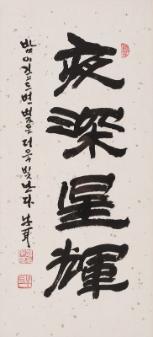 夜深星輝
밤이 깊으면 별은 더욱 빛난다